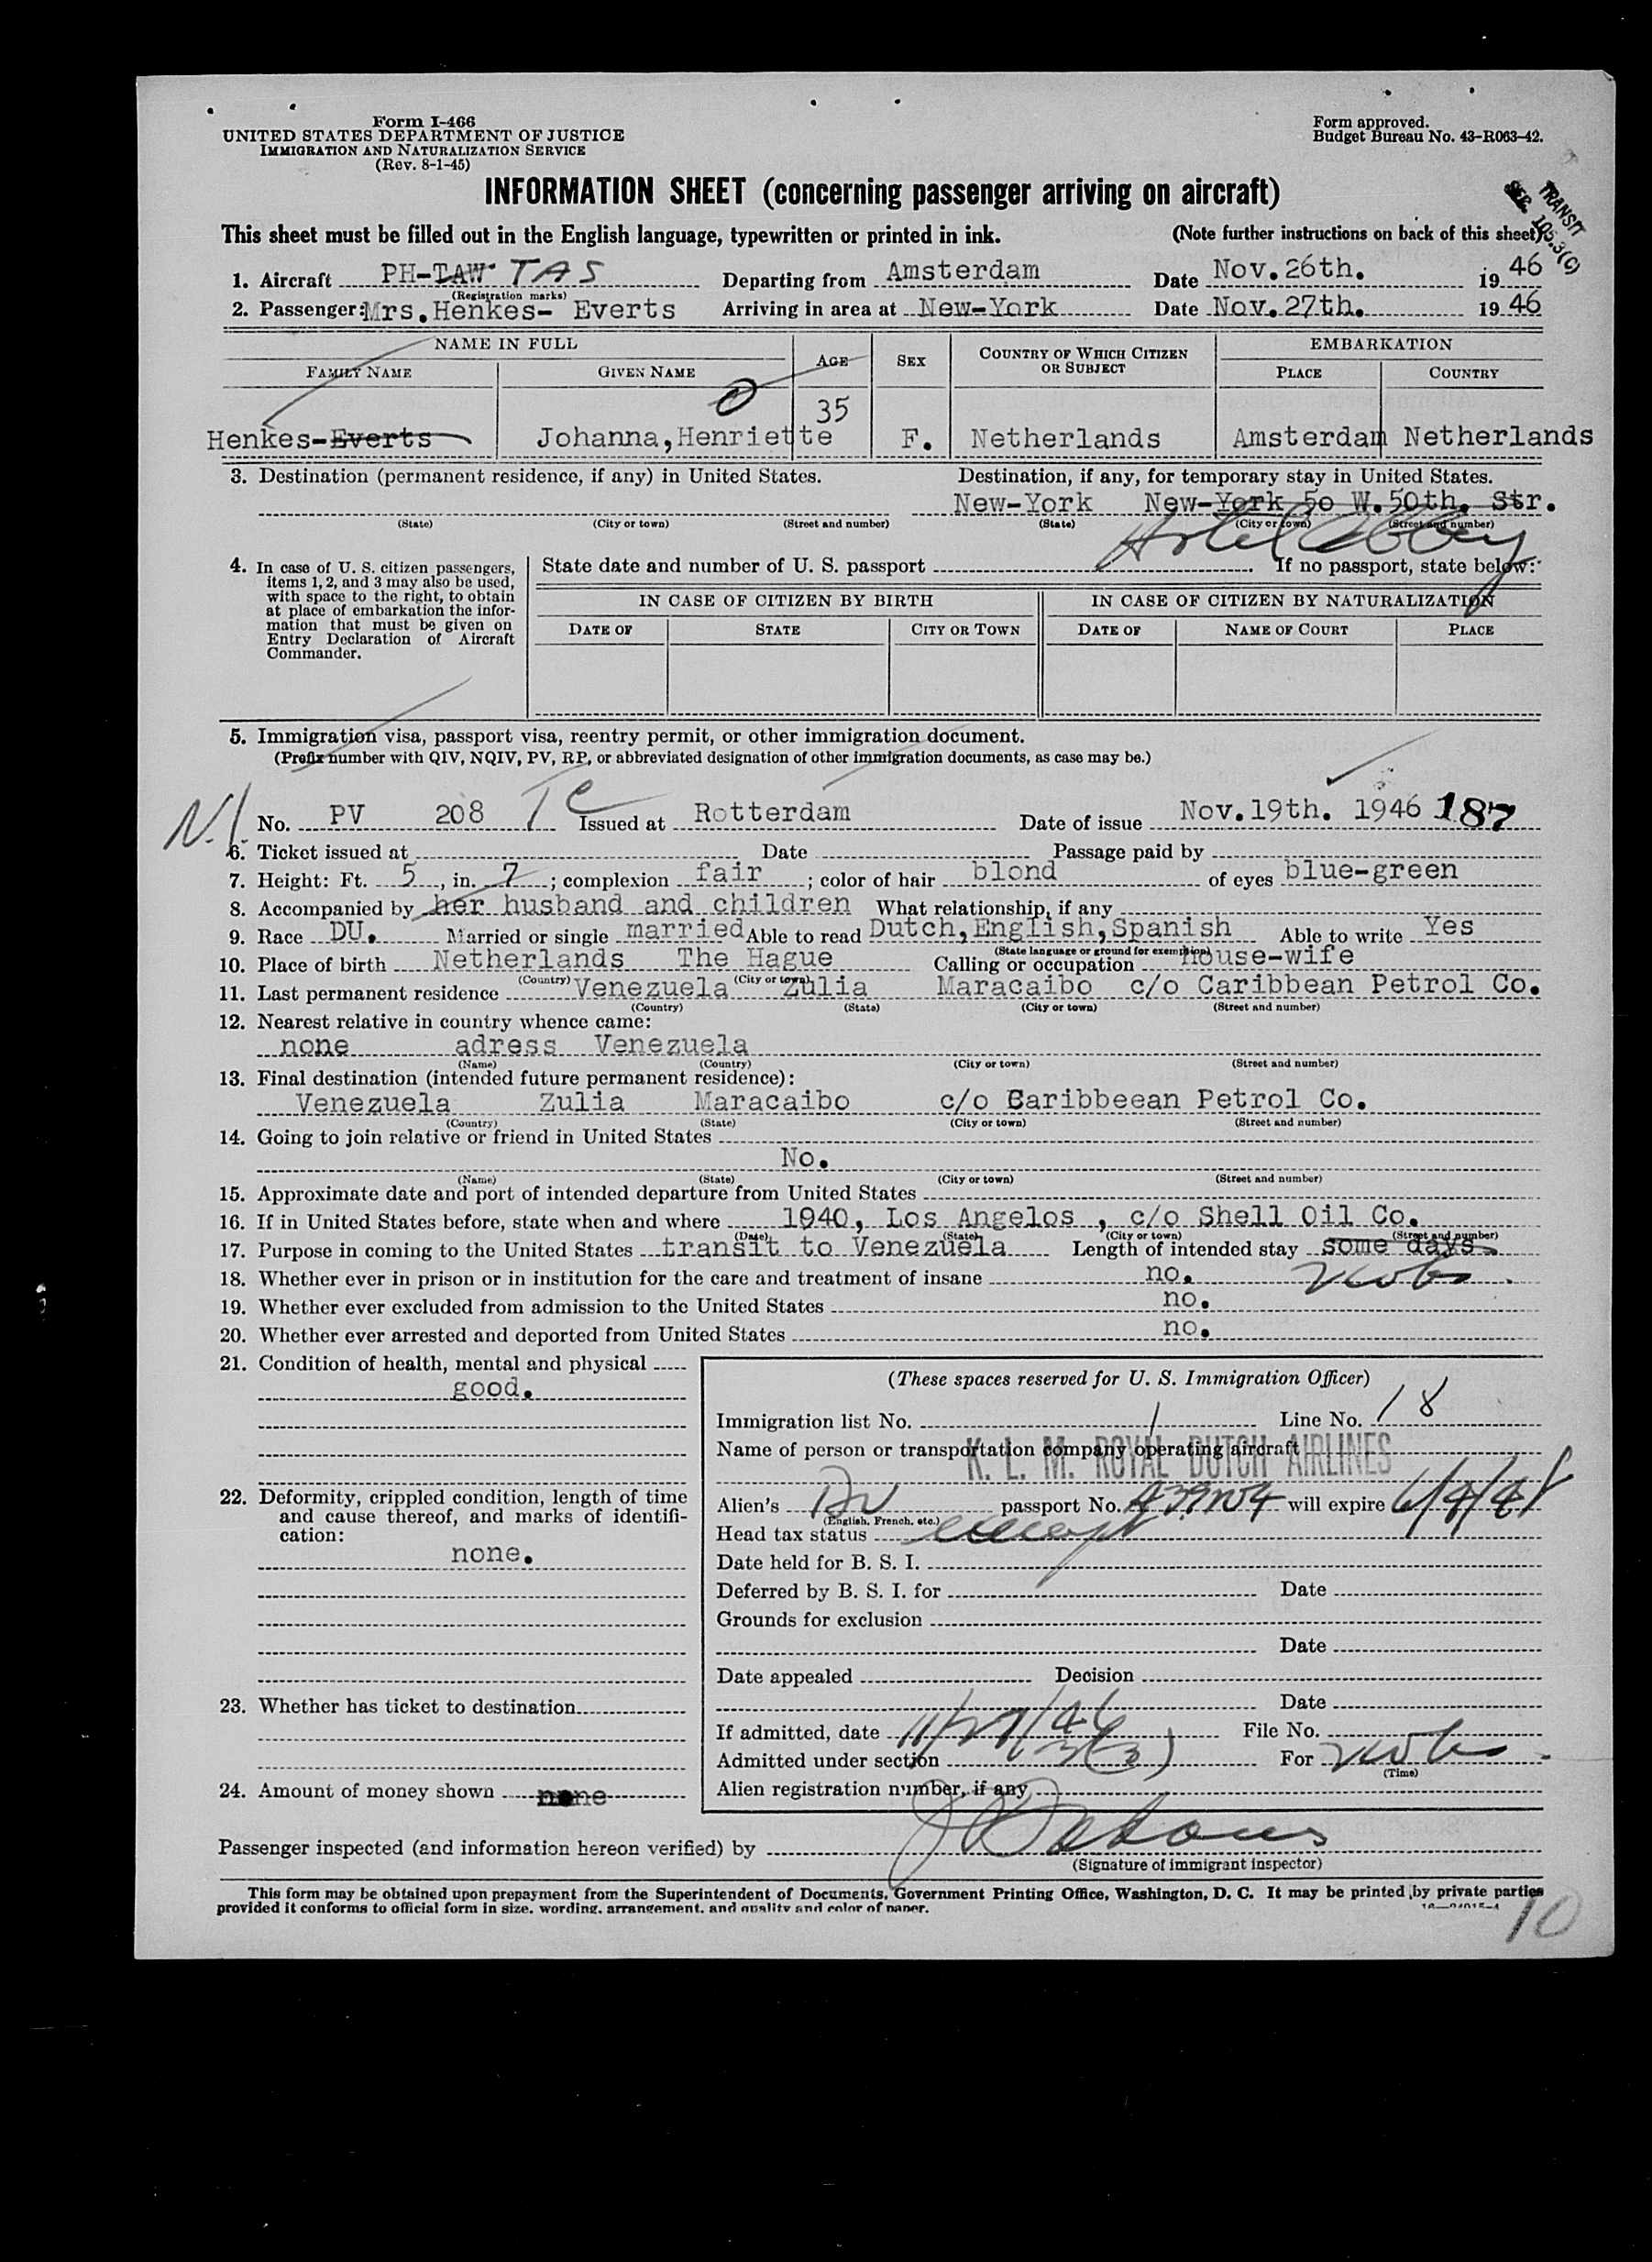 Form I-466
UNITED STATES DEPARTMENT OF JUSTICE
IMMIGRATION AND NATURALIZATION SERVICE
(Rev. 8-1-45)
Form approved.
Budget Bureau No. 43-R063-42.
INFORMATION SHEET (concerning passenger arriving on aircraft)
TRANSIT
SEC. 105.3(C)
This sheet must be filled out in the English language, typewritten or printed in ink. (Note further instructions on back of this sheet)
1. Aircraft PH-TAW TAS Departing from Amsterdam Date Nov.26th. 19 46
(Registration marks)
2. Passenger: Mrs.Henkes- Everts Arriving in area at New-York Date Nov.27th. 19 46
NAME IN FULL AGE SEX COUNTRY OF WHICH CITIZEN OR SUBJECT EMBARKATION
FAMILY NAME GIVEN NAME PLACE COUNTRY
35
Henkes-Everts Johanna,Henriette F. Netherlands Amsterdam Netherlands
3. Destination (permanent residence, if any) in United States. Destination, if any, for temporary stay in United States.
New-York New-York 50 W.50th. Str.
(State) (City or town) (Street and number) (State) (City or town) (Street and number)
Hotel Abbey
4. In case of U. S. citizen passengers, items 1, 2, and 3 may also be used, with space to the right, to obtain at place of embarkation the information that must be given on Entry Declaration of Aircraft Commander.
State date and number of U. S. passport If no passport, state below:
IN CASE OF CITIZEN BY BIRTH IN CASE OF CITIZEN BY NATURALIZATION
DATE OF STATE CITY OR TOWN DATE OF NAME OF COURT PLACE
5. Immigration visa, passport visa, reentry permit, or other immigration document.
(Prefix number with QIV, NQIV, PV, RP, or abbreviated designation of other immigration documents, as case may be.)
N.I. No. PV 208 TC Issued at Rotterdam Date of issue Nov.19th. 1946 187
6. Ticket issued at Date Passage paid by
7. Height: Ft. 5, in. 7; complexion fair; color of hair blond of eyes blue-green
8. Accompanied by her husband and children What relationship, if any
9. Race DU. Married or single married Able to read Dutch,English,Spanish Able to write Yes
(State language or ground for exemption)
10. Place of birth Netherlands The Hague Calling or occupation House-wife
(Country) (City or town)
11. Last permanent residence Venezuela Zulia Maracaibo c/o Caribbean Petrol Co.
(Country) (State) (City or town) (Street and number)
12. Nearest relative in country whence came:
none adress Venezuela
(Name) (Country) (City or town) (Street and number)
13. Final destination (intended future permanent residence):
Venezuela Zulia Maracaibo c/o Caribbeean Petrol Co.
(Country) (State) (City or town) (Street and number)
14. Going to join relative or friend in United States
No.
(Name) (State) (City or town) (Street and number)
15. Approximate date and port of intended departure from United States
16. If in United States before, state when and where 1940, Los Angelos , c/o Shell Oil Co.
(Date) (State) (City or town) (Street and number)
17. Purpose in coming to the United States transit to Venezuela Length of intended stay some days
18. Whether ever in prison or in institution for the care and treatment of insane no.
19. Whether ever excluded from admission to the United States no.
20. Whether ever arrested and deported from United States no.
21. Condition of health, mental and physical
good.
22. Deformity, crippled condition, length of time and cause thereof, and marks of identification:
none.
23. Whether has ticket to destination
24. Amount of money shown none
(These spaces reserved for U. S. Immigration Officer)
Immigration list No. 1 Line No. 18
Name of person or transportation company operating aircraft
K. L. M. ROYAL DUTCH AIRLINES
Alien's Du passport No. will expire
(English, French, etc.)
Head tax status exempt
Date held for B. S. I.
Deferred by B. S. I. for Date
Grounds for exclusion
Date
Date appealed Decision
Date
If admitted, date 11/27/46 File No.
Admitted under section 3(3) For
(Time)
Alien registration number, if any
Passenger inspected (and information hereon verified) by
(Signature of immigrant inspector)
This form may be obtained upon prepayment from the Superintendent of Documents, Government Printing Office, Washington, D. C. It may be printed by private parties
provided it conforms to official form in size, wording, arrangement, and quality and color of paper.
10